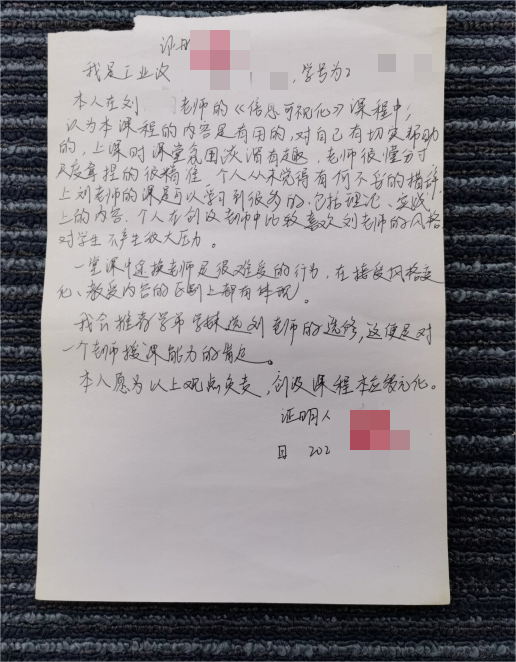 证明
我是工业设 ，学号为2
本人在刘 老师的《信息可视化》课程中，
认为本课程的内容是有用的，对自己有切实帮助
的，上课时课堂氛围诙谐有趣，老师很懂分寸
尺度拿捏的很精准 个人从未觉得有何不妥的措辞
上刘老师的课是可以学习到很多的，包括理论、实践
上的内容，个人在创设老师中比较喜欢刘老师的风格
对学生不产生很大压力。
一堂课中途换老师是很难受的行为，在接受风格变
化、教授内容的区别上都有体现。
我会推荐学弟学妹选刘老师的选修，这便是对
一个老师授课能力的肯定。
本人愿为以上观点负责，创设课程本应多元化。
证明人
日 202